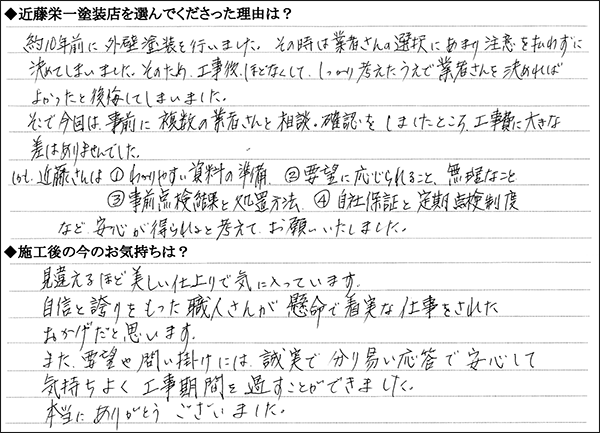 ◆近藤栄一塗装店を選んでくださった理由は？
約10年前に外壁塗装を行いました。その時は業者さんの選択にあまり注意を払わずに
決めてしまいました。そのため、工事後、ほどなくして、しっかり考えたうえで業者さんを決めれば
よかったと後悔してしまいました。
そこで今回は、事前に複数の業者さんと相談・確認をしましたところ、工事費に大きな
差はありませんでした。
しかし、近藤さんは ①わかりやすい資料の準備、②要望に応じられること、無理なこと
③事前点検結果と処置方法、④自社保証と定期点検制度
など、安心が得られると考えて、お願いいたしました。
◆施工後の今のお気持ちは？
見違えるほど美しい仕上りで気に入っています。
自信と誇りをもった職人さんが懸命で着実な仕事をされた
おかげだと思います。
また、要望や問い掛けには、誠実で分り易い応答で安心して
気持ちよく工事期間を過すことができました。
本当にありがとうございました。